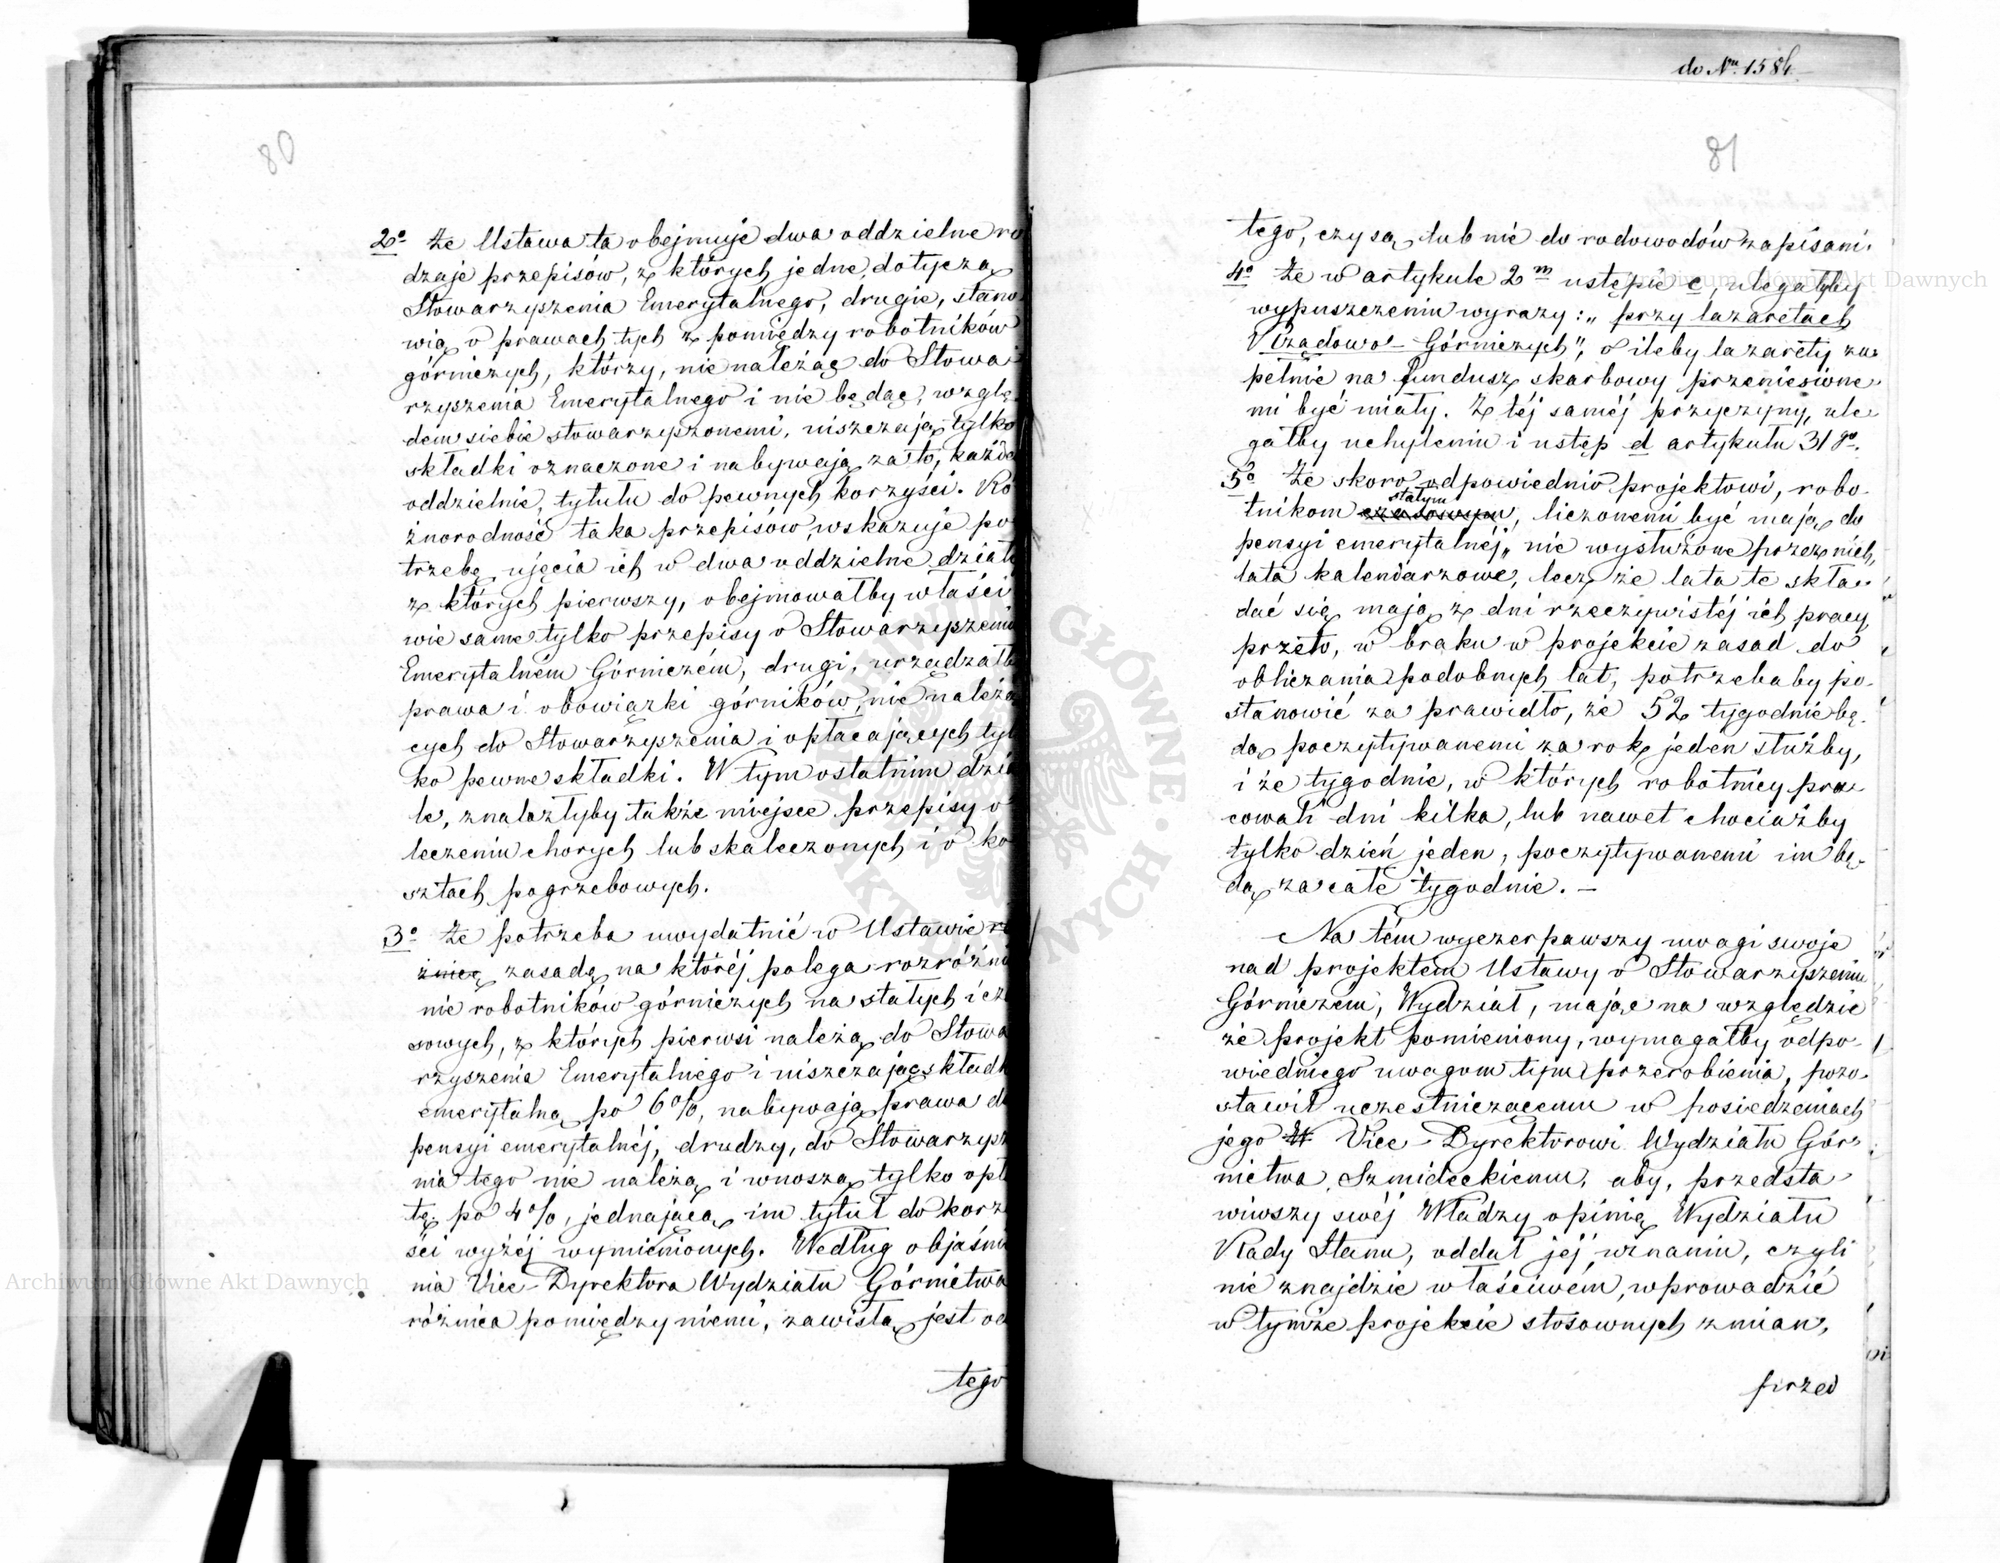 80
2o że Ustawa ta obejmuje dwa oddzielne ro
dzaje przepisów, z których jedne, dotyczą
Stowarzyszenia Emerytalnego, drugie, stano
wią o prawach tych z pomiędzy robotników
górniczych, którzy, nie należąc do Stowa
rzyszenia Emerytalnego i nie będąc, wzglę
dem siebie stowarzyszonemi, uiszczają tylko
składki oznaczone i nabywają za to, każde
oddzielnie, tytułu do pewnych korzyści. Ró
żnorodność taka przepisów, wskazuje po
trzebę ujęcia ich w dwa oddzielne działy
z których pierwszy, obejmowałby właści
wie same tylko przepisy o Stowarzyszeniu
Emerytalném Górniczém, drugi, urządzałby
prawa i obowiązki górników, nie należą
cych do Stowarzyszenia i opłacających tyl
ko pewne składki. W tym ostatnim dzia
le, znalazłyby także miejsce przepisy o
leczeniu chorych lub skaleczonych i o ko
sztach pogrzebowych.
3o że potrzeba uwydatnić w Ustawie ró
żnicę zasadę na któréj polega rozróżnia
nie robotników górniczych na stałych i cza
sowych, z których pierwsi należą do Stowa
rzyszenia Emerytalnego i uiszczając składkę
emerytalną po 6%, nabywają prawa do
pensyi emerytalnéj, drudzy, do Stowarzysze
nia tego nie należą i wnoszą tylko opła
tę po 4%, jednającą im tytuł do korzy
ści wyżéj wymienionych. Według objaśnie
nia Vice-Dyrektora Wydziału Górnictwa
różnica pomiędzy niemi, zawisłą jest od
tego
do Nru 1584
81
tego, czy są, lub nie do rodowodów zapisani.
4o że w artykule 2m ustępie c, ulegałyby
wypuszczeniu wyrazy: „przy lazaretach
Rządowo-Górniczych", o ileby lazarety zu
pełnie na fundusz skarbowy przeniesione
mi być miały. Z téj saméj przyczyny, ule
gałby uchyleniu i ustęp d artykułu 31go.
5o że skoro, odpowiednio projektowi, robo
stałym
tnikom czasowym, liczonemi być mają do
pensyi emerytalnéj, nie wysłużone przez nich,
lata kalendarzowe, lecz że lata te skła
dać się mają z dni rzeczywistéj ich pracy
przeto, w braku w projekcie zasad do
obliczania podobnych lat, potrzebaby po-
stanowić za prawidło, że 52 tygodnie bę-
dą poczytywanemi za rok jeden służby,
i że tygodnie, w których robotnicy pra-
cowali dni kilka, lub nawet chociażby
tylko dzień jeden, poczytywanemi im bę-
dą za całe tygodnie. —
Na tém wyczerpawszy uwagi swoje
nad projektem Ustawy o Stowarzyszeniu
Górniczem, Wydział, mając na względzie
że projekt pomieniony, wymagałby odpo-
wiedniego uwagom tym przerobienia, pozo-
stawił uczestniczącemu w posiedzeniach
jego W Vice-Dyrektorowi Wydziału Gór-
nictwa, Szmideckiemu, aby, przedsta-
wiwszy swéj Władzy opinię Wydziału
Rady Stanu, oddał jéj uznaniu, czyli
nie znajdzie właściwém, wprowadzić
w tymże projekcie stosownych zmian,
przed
Archiwum Główne Akt Dawnych
Archiwum Główne Akt Dawnych